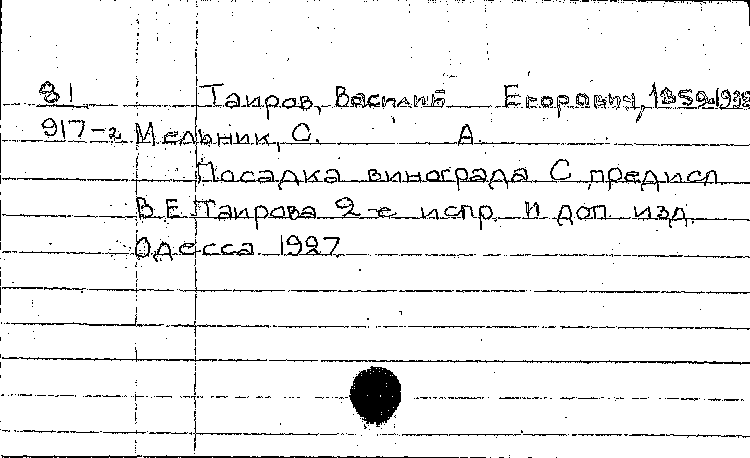 81 Таиров, Василий Егорович, 1859-1938
917-2 Мельник, С. А.
Посадка винограда С предисл
В. Е. Таирова 2-е испр. и доп. изд.
Одесса 1927